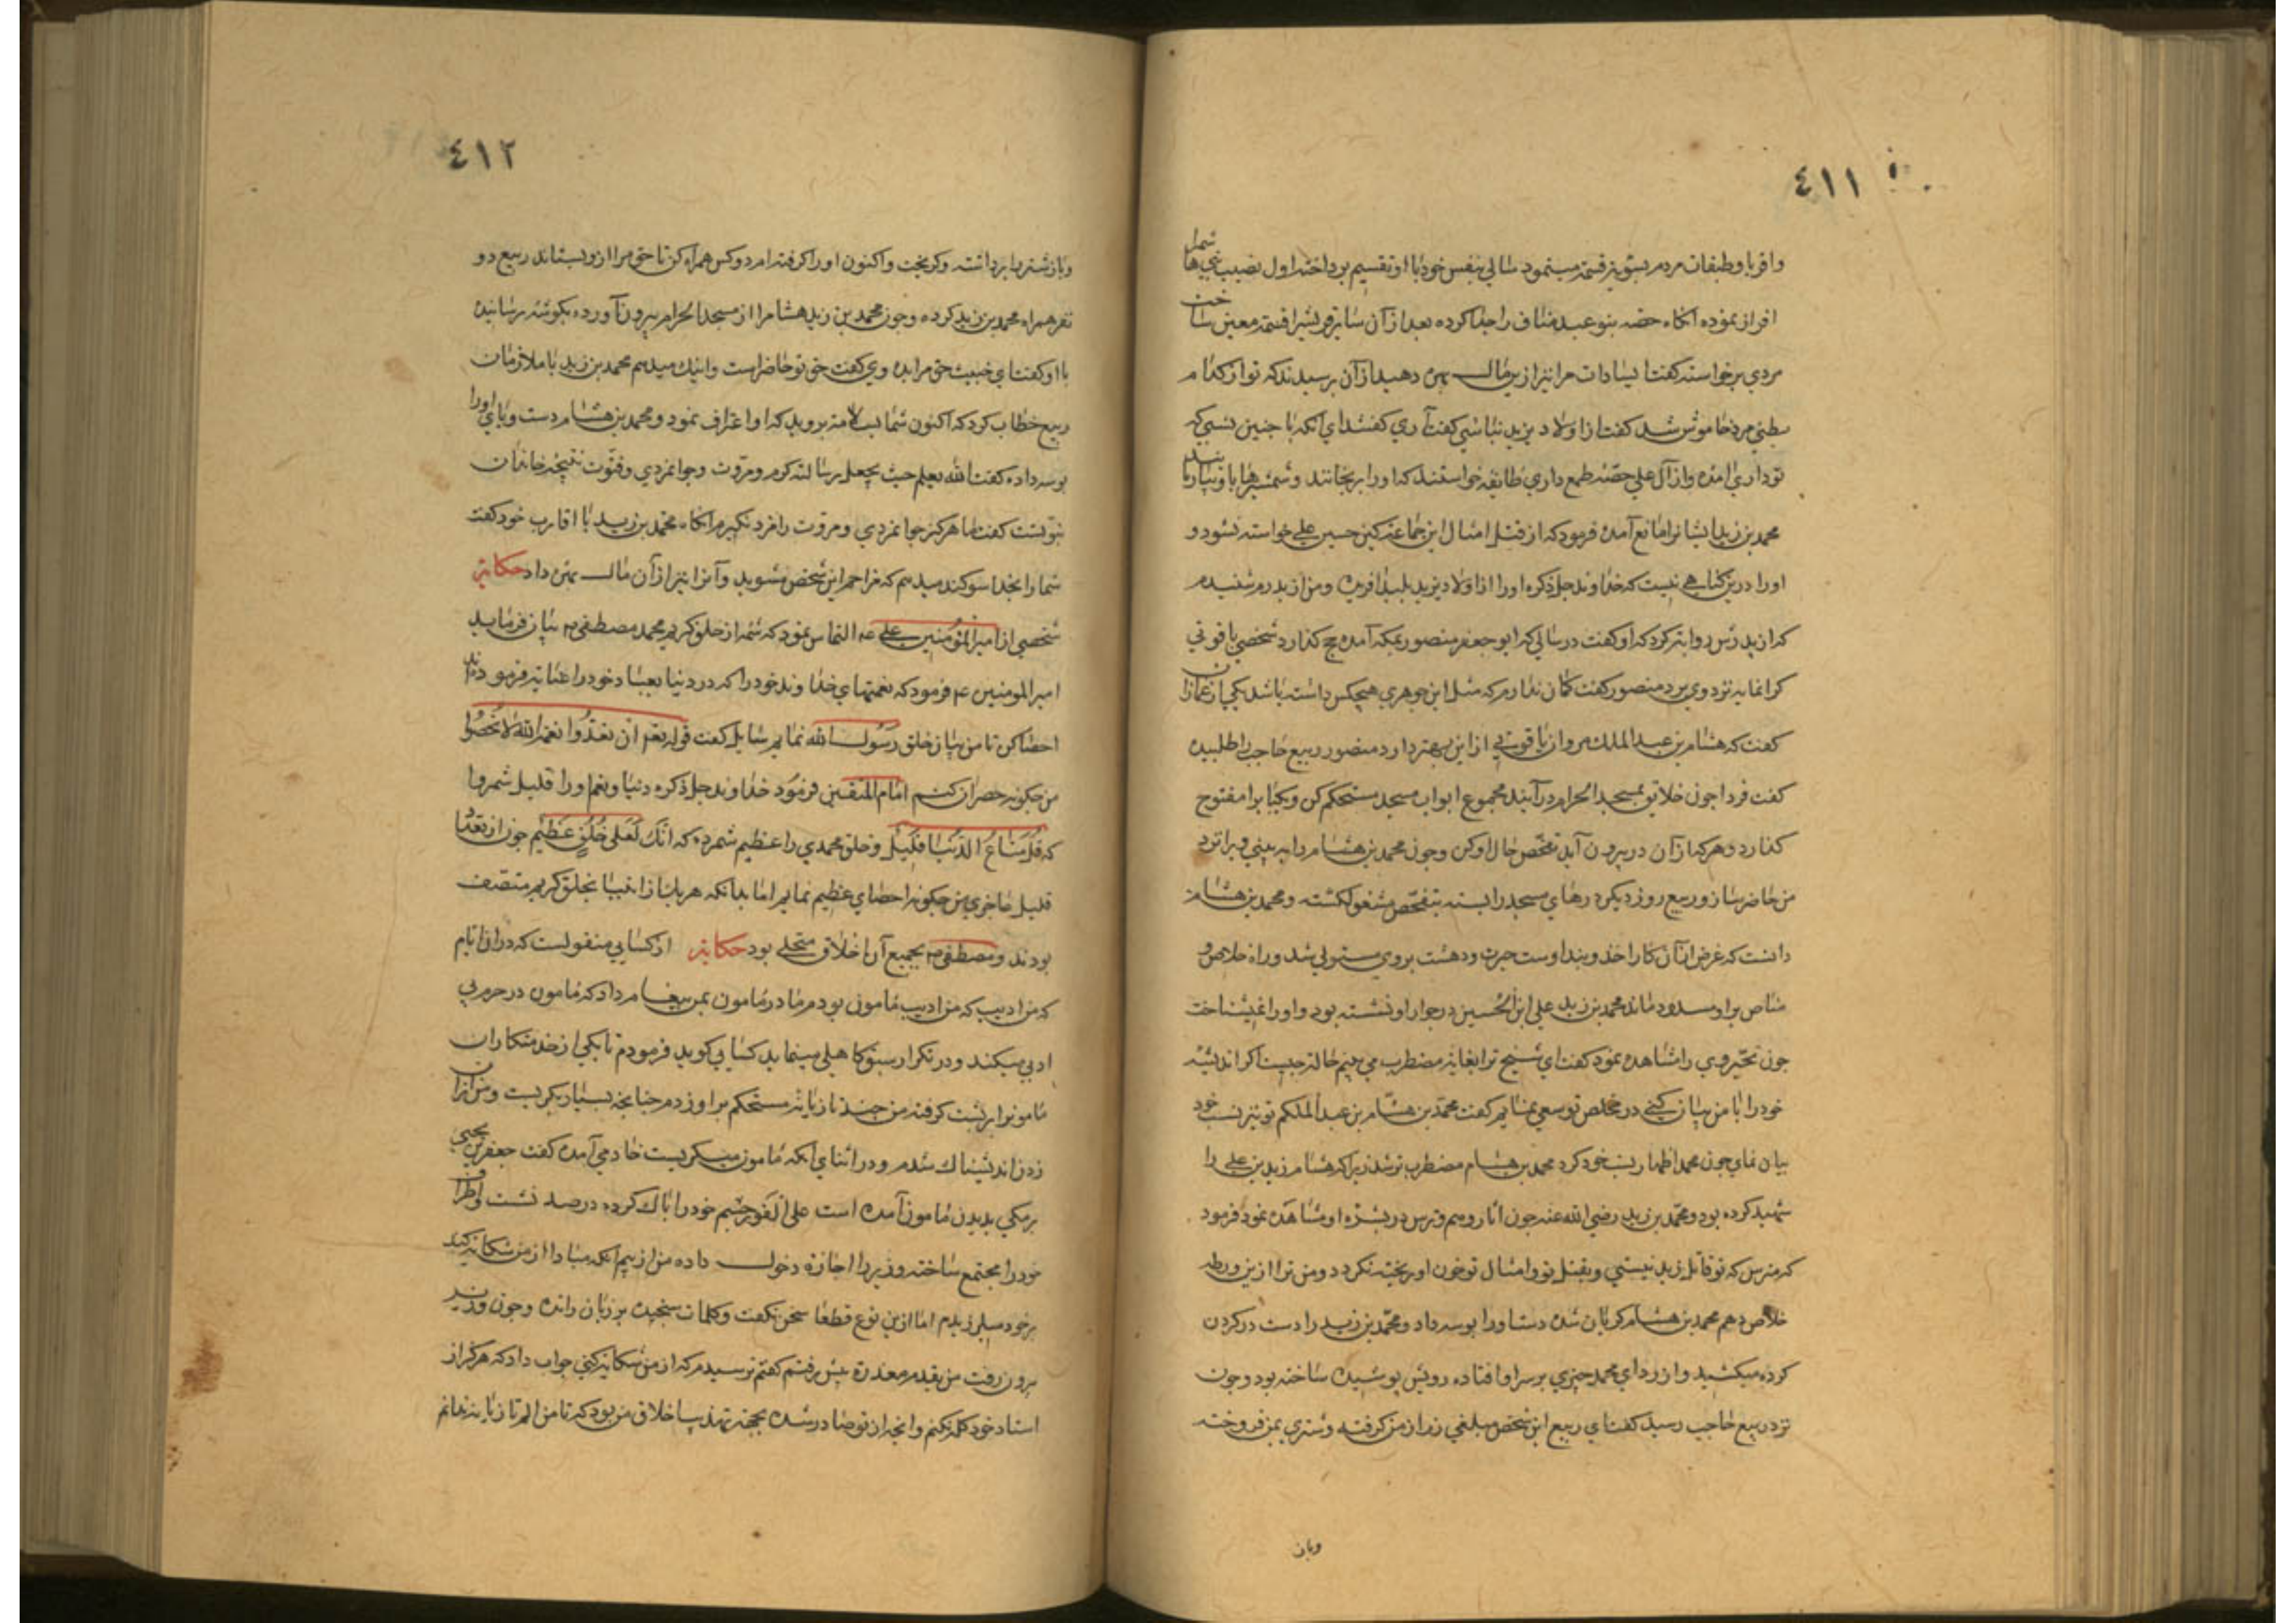 ٤١١
واقربا و طبقات مردم بسویه قسمة مینمود سالی بنفس خود با او تقسیم پرداخته اول نصیب بنی هاشم را
افراز نموده آنکاه حصه بنو عبد مناف را جدا کرده بعد از آن سایر قریش را قسمة معین ساخت
مردی برخواسته کفت یا سادات مرا نیز ازین مال بهره دهید از آن پرسیدند که تو از کدام
بطنی مرد خاموش شد کفت از اولاد یزید نباشی کفت آری کفتند ای آنکه با چنین نسبی که
تو داری آمده و از آل علی حصه طمع داری طایفه خواستند که او را برنجانند و شمشیرها باو نیازند
محمد بن زید ایشانرا مانع آمده فرمود که از قتل امثال این جماعة کین حسین علی خواسته نشود و
او را درین کناهی نیست که خداوند جل ذکره او را از اولاد یزید پلید آفریده و من از پدرم شنیدم
که از پدرش روایة کرد که او کفت در سالی که ابو جعفر منصور بمکه آمده حج کذارد شخصی یاقوتی
کرانمایه نزد وی برد منصور کفت کمان ندارم که مثل این جوهری هیچکس داشته باشد یکی از غمازان
کفت که هشام بن عبد الملك مروان یاقوتی از این بهتر دارد منصور ربیع حاجب را طلبیده
کفت فردا چون خلایق بمسجد الحرام درآیند مجموع ابواب مسجد مستحکم کن و یکبابرا مفتوح
کذارد و هر که از آن در بیرون آید تفحص حال او کن و چون محمد بن هشام را به بینی ویرا نزد
من حاضر ساز و ربیع روز دیکر درهای مسجد را بسته بتفحص مشغول کشته و محمد بن هشام
دانست که غرض از آن کار اخذ و بند اوست حیرت و دهشت بروی مستولی شد و راه خلاص و
مناص بر او مسدود ماند محمد بن زید علی ابن الحسین در جوار او نشسته بود و او را نمیشناخت
چون تحیر وی را مشاهده نمود کفت ای شیخ ترا بغایة مضطرب می بینم حالة چیست اکر اندیشه
خود را با من بیان کنی در مخلص تو سعی نمایم کفت محمد بن هشام بن عبد الملکم تو نیز نسب خود
بیان نمای چون محمد اظهار نسب خود کرد محمد بن هشام مضطرب تر شد زیرا که هشام زید بن علی را
شهید کرده بود و محمد بن زید رضی الله عنه چون آثار وهم و ترس در بشره او مشاهده نمود فرمود
که مترس که تو قاتل زید نیستی و بقتل تو و امثال تو خون او ریخته نکردد و من ترا ازین ورطه
خلاص دهم محمد بن هشام کریان شده دست او را بوسه داد و محمد بن زید را دست در کردن
کرده میکشید و از ردای محمد چیزی بر سر او افتاده رویش پوشیده ساخته بود و چون
نزد ربیع حاجب رسید کفت ای ربیع این شخص مبلغی زر از من کرفته و شتری بمن فروخته
وباز
٤١٢
وباز شتر را برداشته و کریخت و اکنون او را کرفته ام دو کس همراه کن تا حق مرا از و بستاند ربیع دو
نفر همراه محمد بن زید کرده و چون محمد بن زید هشام را از مسجد الحرام بیرون آورده بکوشه رسانید
با او کفت ای خبیث حق مرا بده وی کفت حق تو حاضر است و اینك میدهم محمد بن زید با ملازمان
ربیع خطاب کرد که اکنون شما بسلامة بروید که او اعتراف نمود و محمد بن هشام دست و پای او را
بوسه داده کفت الله یعلم حیث یجعل رسالته کرم و مروت و جوانمردی و فتوت نتیجه خاندان
نبوتست کفت ما هرکز جوانمردی و مروت را مزد نکیرم آنکاه محمد بن زید با اقارب خود کفت
شما را بخدا سوکند میدهم که مزاحم این شخص مشوید و آنرا نیز از آن مال بهره داد حکایة
شخصی از امیر المؤمنین علی عه التماس نمود که شمه از خلق کریم محمد مصطفی ص بیان فرماید
امیر المومنین ع فرمود که نعمتهای خداوند خود را که در دنیا بعباد خود را عنایة فرموده اند
احصا کن تا من بیان خلق رسول الله نمایم سایل کفت قوله تعم ان تعدوا نعمة الله لا تحصوا
من چکونه حصر آن کنم امام المتقین فرمود خداوند جل ذکره دنیا و نعم او را قلیل شمرد
که قل متاع الدنیا قلیل و خلق محمدی را عظیم شمرده که انك لعلی خلق عظیم چون از تعداد
قلیل عاجزی من چکونه احصای عظیم نمایم اما بدانکه هر یك از انبیا بخلق کریم متصف
بودند و مصطفی ص بجمیع آن اخلاق متحلی بود حکایة از کسایی منقولست که در آن ایام
که من ادیب که من ادیب مامون بودم مادر مامون بمن پیغام داد که مامون در حرم بی
ادبی میکند و در تکرار سبق کاهلی مینماید کسایی کوید فرمودم تا یکی از خدمتکاران
مامونرا بر پشت کرفته من چند تازیانه مستحکم بر او زدم چنانچه بسیار بکریست و من از آن
زدن اندیشناك شدم و در اثنای آنکه مامون میکریست خادمی آمده کفت جعفر بن یحیی
برمکی بدیدن مامون آمده است علی الفور چشم خود را پاك کرده در صدر نشست و اطراف
خود را مجتمع ساخته وزیر را اجازه دخول داده من از بیم آنکه مبادا از من شکایة کند
بر خود میلرزیدم اما ازین نوع قطعا سخن نکفت و کلمات سنجیده بر زبان رانده و چون وزیر
بیرون رفت من بقدم معذرة پیش رفتم کفتم ترسیدم که از من شکایة کنی جواب داد که هرکز از
استاد خود کله نکنم و آنچه از تو صادر شده بجهة تهذیب اخلاق من بود که تا من الم تازیانه ندانم